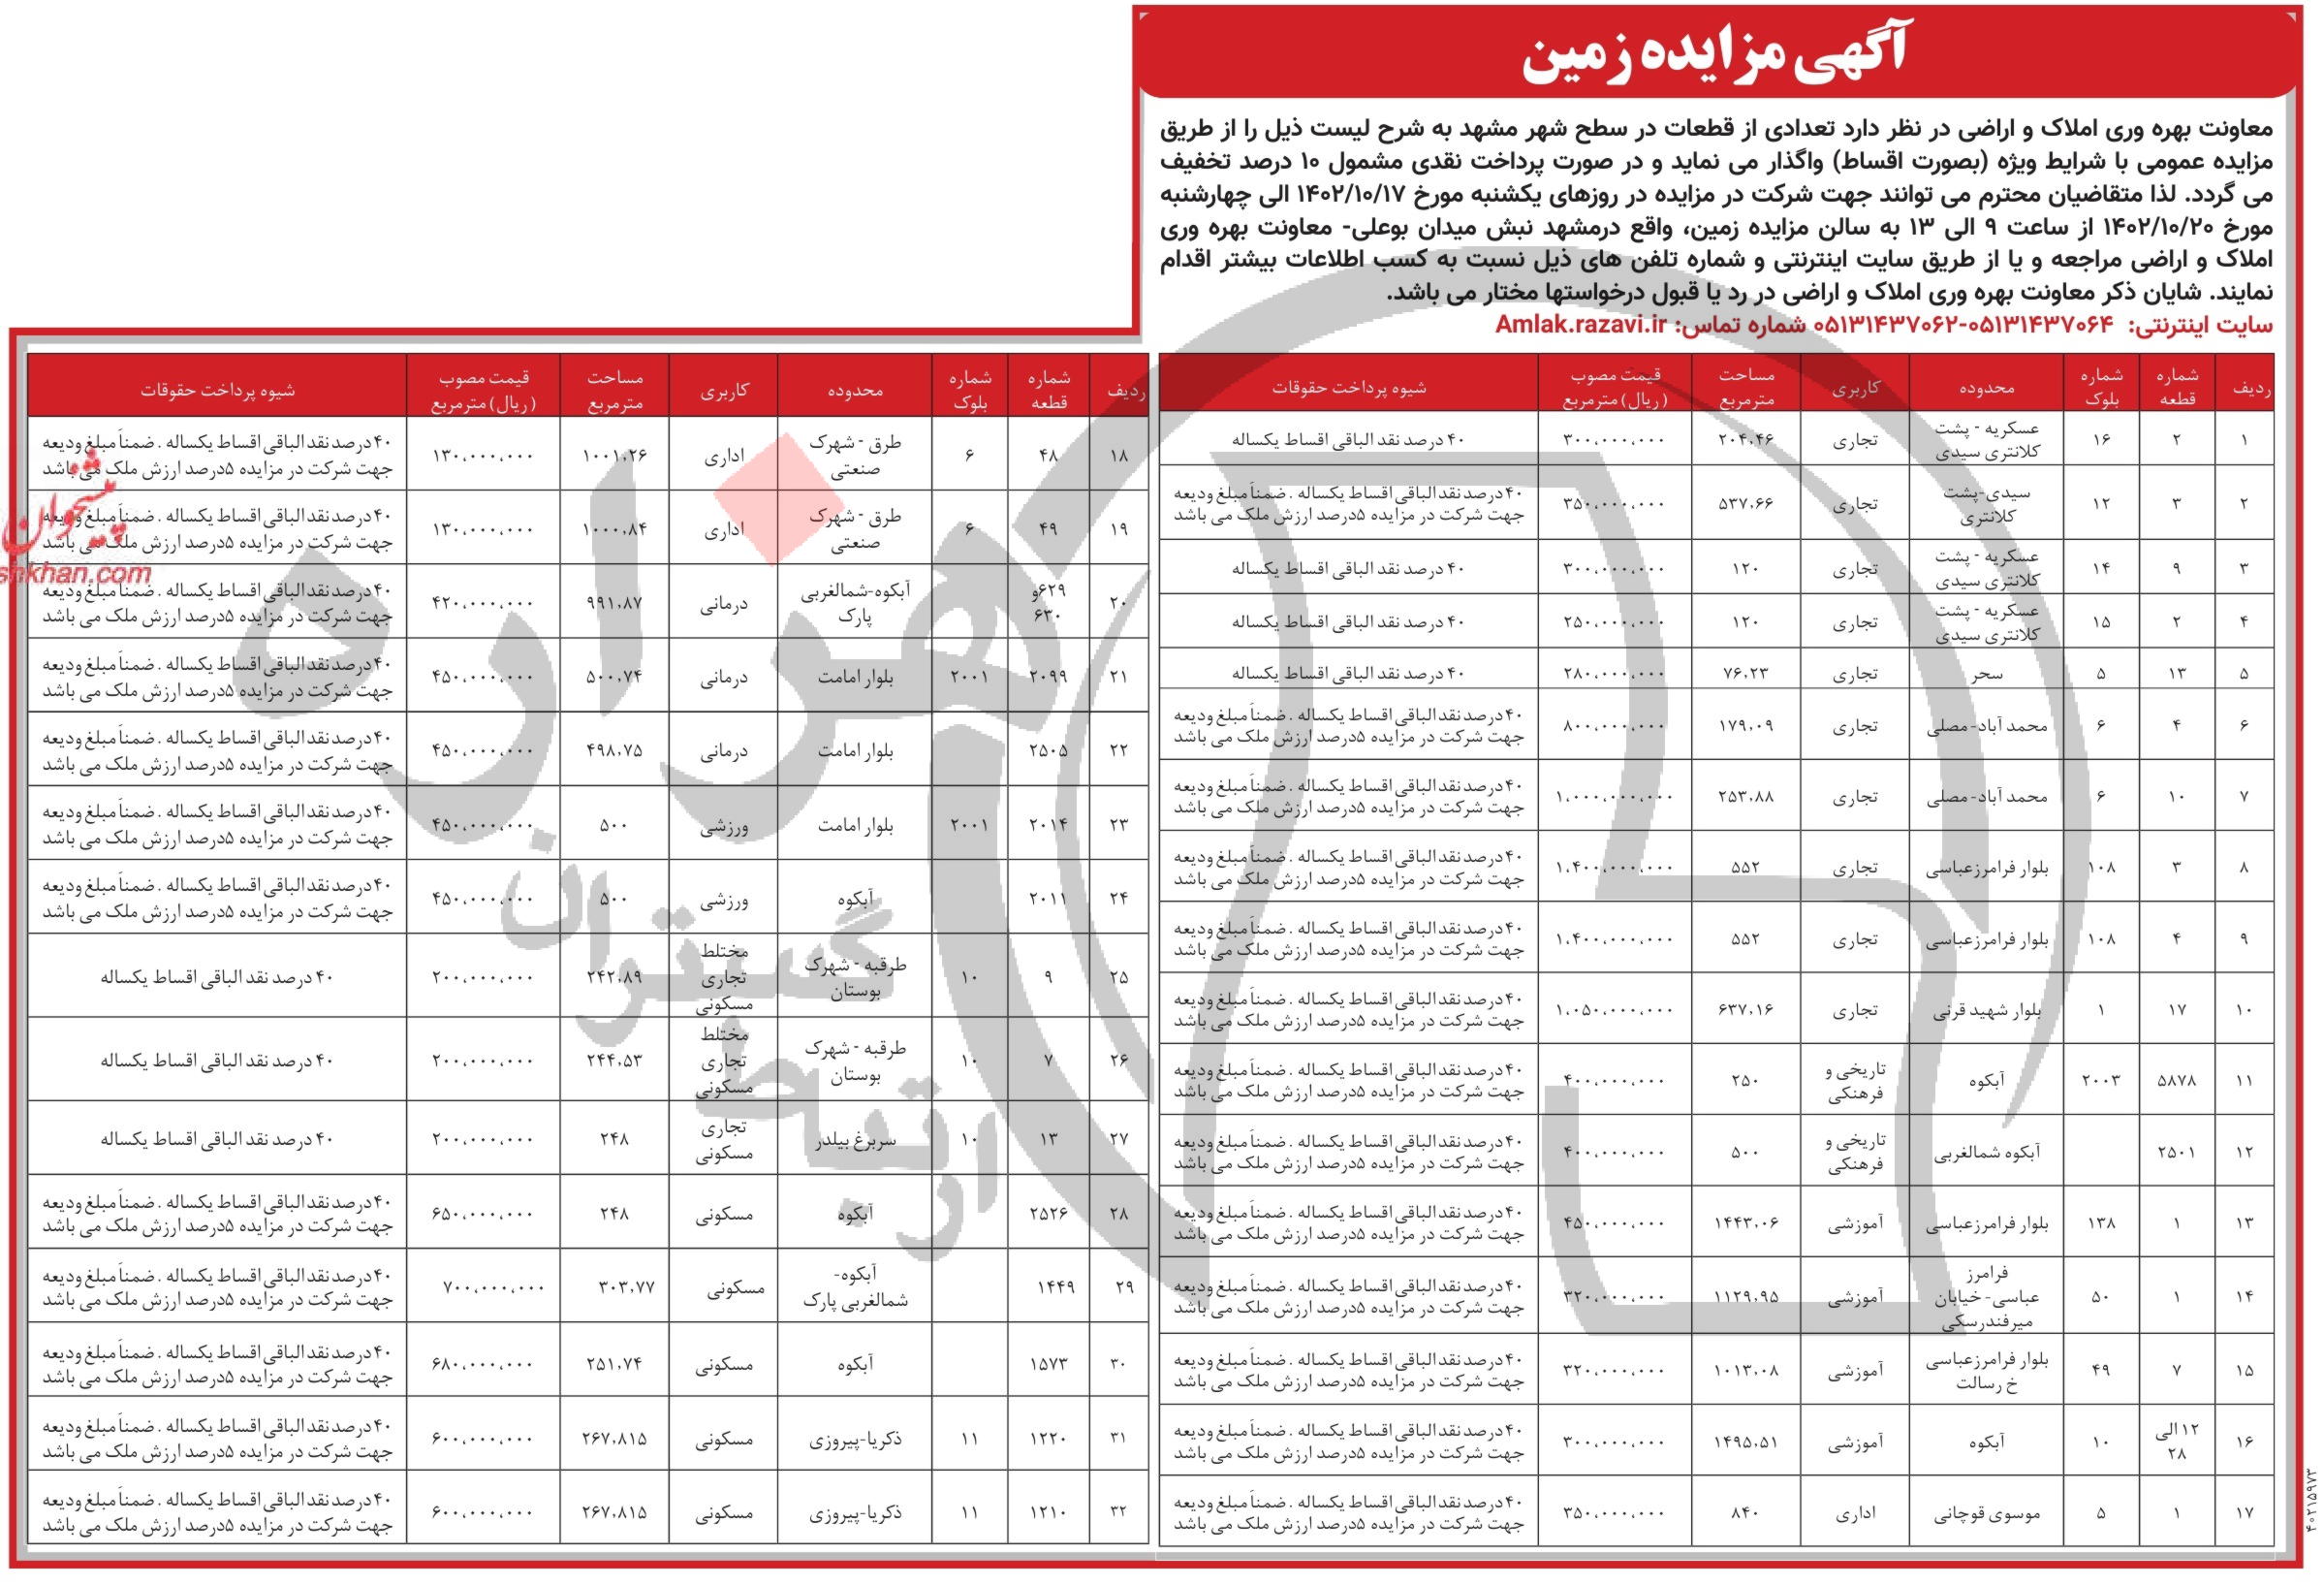 آگهی مزایده زمین
معاونت بهره وری املاک و اراضی در نظر دارد تعدادی از قطعات در سطح شهر مشهد به شرح لیست ذیل را از طریق
مزایده عمومی با شرایط ویژه (بصورت اقساط) واگذار می نماید و در صورت پرداخت نقدی مشمول ۱۰ درصد تخفیف
می گردد. لذا متقاضیان محترم می توانند جهت شرکت در مزایده در روزهای یکشنبه مورخ ۱۴۰۲/۱۰/۱۷ الی چهارشنبه
مورخ ۱۴۰۲/۱۰/۲۰ از ساعت ۹ الی ۱۳ به سالن مزایده زمین، واقع درمشهد نبش میدان بوعلی- معاونت بهره وری
املاک و اراضی مراجعه و یا از طریق سایت اینترنتی و شماره تلفن های ذیل نسبت به کسب اطلاعات بیشتر اقدام
نمایند. شایان ذکر معاونت بهره وری املاک و اراضی در رد یا قبول درخواستها مختار می باشد.
سایت اینترنتی: ۰۵۱۳۱۴۳۷۰۶۲-۰۵۱۳۱۴۳۷۰۶۴ شماره تماس: Amlak.razavi.ir
ردیف شماره قطعه شماره بلوک محدوده کاربری مساحت مترمربع قیمت مصوب (ریال) مترمربع شیوه پرداخت حقوقات
۱ ۲ ۱۶ عسکریه - پشت کلانتری سیدی تجاری ۲۰۴.۴۶ ۳۰۰.۰۰۰.۰۰۰ ۴۰ درصد نقد الباقی اقساط یکساله
۲ ۳ ۱۲ سیدی-پشت کلانتری تجاری ۵۳۷.۶۶ ۳۵۰.۰۰۰.۰۰۰ ۴۰درصد نقد الباقی اقساط یکساله . ضمناً مبلغ ودیعه جهت شرکت در مزایده ۵درصد ارزش ملک می باشد
۳ ۹ ۱۴ عسکریه - پشت کلانتری سیدی تجاری ۱۲۰ ۳۰۰.۰۰۰.۰۰۰ ۴۰ درصد نقد الباقی اقساط یکساله
۴ ۲ ۱۵ عسکریه - پشت کلانتری سیدی تجاری ۱۲۰ ۲۵۰.۰۰۰.۰۰۰ ۴۰ درصد نقد الباقی اقساط یکساله
۵ ۱۳ ۵ سحر تجاری ۷۶.۲۳ ۲۸۰.۰۰۰.۰۰۰ ۴۰ درصد نقد الباقی اقساط یکساله
۶ ۴ ۶ محمد آباد-مصلی تجاری ۱۷۹.۰۹ ۸۰۰.۰۰۰.۰۰۰ ۴۰درصد نقد الباقی اقساط یکساله . ضمناً مبلغ ودیعه جهت شرکت در مزایده ۵درصد ارزش ملک می باشد
۷ ۱۰ ۶ محمد آباد-مصلی تجاری ۲۵۳.۸۸ ۱.۰۰۰.۰۰۰.۰۰۰ ۴۰درصد نقد الباقی اقساط یکساله . ضمناً مبلغ ودیعه جهت شرکت در مزایده ۵درصد ارزش ملک می باشد
۸ ۳ ۱۰۸ بلوار فرامرزعباسی تجاری ۵۵۲ ۱.۴۰۰.۰۰۰.۰۰۰ ۴۰درصد نقد الباقی اقساط یکساله . ضمناً مبلغ ودیعه جهت شرکت در مزایده ۵درصد ارزش ملک می باشد
۹ ۴ ۱۰۸ بلوار فرامرزعباسی تجاری ۵۵۲ ۱.۴۰۰.۰۰۰.۰۰۰ ۴۰درصد نقد الباقی اقساط یکساله . ضمناً مبلغ ودیعه جهت شرکت در مزایده ۵درصد ارزش ملک می باشد
۱۰ ۱۷ ۱ بلوار شهید قرنی تجاری ۶۳۷.۱۶ ۱.۰۵۰.۰۰۰.۰۰۰ ۴۰درصد نقد الباقی اقساط یکساله . ضمناً مبلغ ودیعه جهت شرکت در مزایده ۵درصد ارزش ملک می باشد
۱۱ ۵۸۷۸ ۲۰۰۳ آبکوه تاریخی و فرهنگی ۲۵۰ ۴۰۰.۰۰۰.۰۰۰ ۴۰درصد نقد الباقی اقساط یکساله . ضمناً مبلغ ودیعه جهت شرکت در مزایده ۵درصد ارزش ملک می باشد
۱۲ ۲۵۰۱ آبکوه شمالغربی تاریخی و فرهنگی ۵۰۰ ۴۰۰.۰۰۰.۰۰۰ ۴۰درصد نقد الباقی اقساط یکساله . ضمناً مبلغ ودیعه جهت شرکت در مزایده ۵درصد ارزش ملک می باشد
۱۳ ۱ ۱۳۸ بلوار فرامرزعباسی آموزشی ۱۴۴۳.۰۶ ۴۵۰.۰۰۰.۰۰۰ ۴۰درصد نقد الباقی اقساط یکساله . ضمناً مبلغ ودیعه جهت شرکت در مزایده ۵درصد ارزش ملک می باشد
۱۴ ۱ ۵۰ فرامرز عباسی-خیابان میرفندرسکی آموزشی ۱۱۲۹.۹۵ ۳۲۰.۰۰۰.۰۰۰ ۴۰درصد نقد الباقی اقساط یکساله . ضمناً مبلغ ودیعه جهت شرکت در مزایده ۵درصد ارزش ملک می باشد
۱۵ ۷ ۴۹ بلوار فرامرزعباسی خ رسالت آموزشی ۱۰۱۳.۰۸ ۳۲۰.۰۰۰.۰۰۰ ۴۰درصد نقد الباقی اقساط یکساله . ضمناً مبلغ ودیعه جهت شرکت در مزایده ۵درصد ارزش ملک می باشد
۱۶ ۱۲الی ۲۸ ۱۰ آبکوه آموزشی ۱۴۹۵.۵۱ ۳۰۰.۰۰۰.۰۰۰ ۴۰درصد نقد الباقی اقساط یکساله . ضمناً مبلغ ودیعه جهت شرکت در مزایده ۵درصد ارزش ملک می باشد
۱۷ ۱ ۵ موسوی قوچانی اداری ۸۴۰ ۳۵۰.۰۰۰.۰۰۰ ۴۰درصد نقد الباقی اقساط یکساله . ضمناً مبلغ ودیعه جهت شرکت در مزایده ۵درصد ارزش ملک می باشد
ردیف شماره قطعه شماره بلوک محدوده کاربری مساحت مترمربع قیمت مصوب (ریال) مترمربع شیوه پرداخت حقوقات
۱۸ ۴۸ ۶ طرق - شهرک صنعتی اداری ۱۰۰۱.۲۶ ۱۳۰.۰۰۰.۰۰۰ ۴۰درصد نقد الباقی اقساط یکساله . ضمناً مبلغ ودیعه جهت شرکت در مزایده ۵درصد ارزش ملک می باشد
۱۹ ۴۹ ۶ طرق - شهرک صنعتی اداری ۱۰۰۰.۸۴ ۱۳۰.۰۰۰.۰۰۰ ۴۰درصد نقد الباقی اقساط یکساله . ضمناً مبلغ ودیعه جهت شرکت در مزایده ۵درصد ارزش ملک می باشد
۲۰ ۶۲۹و ۶۳۰ آبکوه-شمالغربی پارک درمانی ۹۹۱.۸۷ ۴۲۰.۰۰۰.۰۰۰ ۴۰درصد نقد الباقی اقساط یکساله . ضمناً مبلغ ودیعه جهت شرکت در مزایده ۵درصد ارزش ملک می باشد
۲۱ ۲۰۹۹ ۲۰۰۱ بلوار امامت درمانی ۵۰۰.۷۴ ۴۵۰.۰۰۰.۰۰۰ ۴۰درصد نقد الباقی اقساط یکساله . ضمناً مبلغ ودیعه جهت شرکت در مزایده ۵درصد ارزش ملک می باشد
۲۲ ۲۵۰۵ بلوار امامت درمانی ۴۹۸.۷۵ ۴۵۰.۰۰۰.۰۰۰ ۴۰درصد نقد الباقی اقساط یکساله . ضمناً مبلغ ودیعه جهت شرکت در مزایده ۵درصد ارزش ملک می باشد
۲۳ ۲۰۱۴ ۲۰۰۱ بلوار امامت ورزشی ۵۰۰ ۴۵۰.۰۰۰.۰۰۰ ۴۰درصد نقد الباقی اقساط یکساله . ضمناً مبلغ ودیعه جهت شرکت در مزایده ۵درصد ارزش ملک می باشد
۲۴ ۲۰۱۱ آبکوه ورزشی ۵۰۰ ۴۵۰.۰۰۰.۰۰۰ ۴۰درصد نقد الباقی اقساط یکساله . ضمناً مبلغ ودیعه جهت شرکت در مزایده ۵درصد ارزش ملک می باشد
۲۵ ۹ ۱۰ طرقبه - شهرک بوستان مختلط تجاری مسکونی ۲۴۲.۸۹ ۲۰۰.۰۰۰.۰۰۰ ۴۰ درصد نقد الباقی اقساط یکساله
۲۶ ۷ ۱۰ طرقبه - شهرک بوستان مختلط تجاری مسکونی ۲۴۴.۵۳ ۲۰۰.۰۰۰.۰۰۰ ۴۰ درصد نقد الباقی اقساط یکساله
۲۷ ۱۳ ۱۰ سربرغ بیلدر تجاری مسکونی ۲۴۸ ۲۰۰.۰۰۰.۰۰۰ ۴۰ درصد نقد الباقی اقساط یکساله
۲۸ ۲۵۲۶ آبکوه مسکونی ۲۴۸ ۶۵۰.۰۰۰.۰۰۰ ۴۰درصد نقد الباقی اقساط یکساله . ضمناً مبلغ ودیعه جهت شرکت در مزایده ۵درصد ارزش ملک می باشد
۲۹ ۱۴۴۹ آبکوه- شمالغربی پارک مسکونی ۳۰۳.۷۷ ۷۰۰.۰۰۰.۰۰۰ ۴۰درصد نقد الباقی اقساط یکساله . ضمناً مبلغ ودیعه جهت شرکت در مزایده ۵درصد ارزش ملک می باشد
۳۰ ۱۵۷۳ آبکوه مسکونی ۲۵۱.۷۴ ۶۸۰.۰۰۰.۰۰۰ ۴۰درصد نقد الباقی اقساط یکساله . ضمناً مبلغ ودیعه جهت شرکت در مزایده ۵درصد ارزش ملک می باشد
۳۱ ۱۲۲۰ ۱۱ ذکریا-پیروزی مسکونی ۲۶۷.۸۱۵ ۶۰۰.۰۰۰.۰۰۰ ۴۰درصد نقد الباقی اقساط یکساله . ضمناً مبلغ ودیعه جهت شرکت در مزایده ۵درصد ارزش ملک می باشد
۳۲ ۱۲۱۰ ۱۱ ذکریا-پیروزی مسکونی ۲۶۷.۸۱۵ ۶۰۰.۰۰۰.۰۰۰ ۴۰درصد نقد الباقی اقساط یکساله . ضمناً مبلغ ودیعه جهت شرکت در مزایده ۵درصد ارزش ملک می باشد
۴۰۲۱۵۹۷۳
پیشخوان
shkhan.com
هزاره
گستران
ارتباط